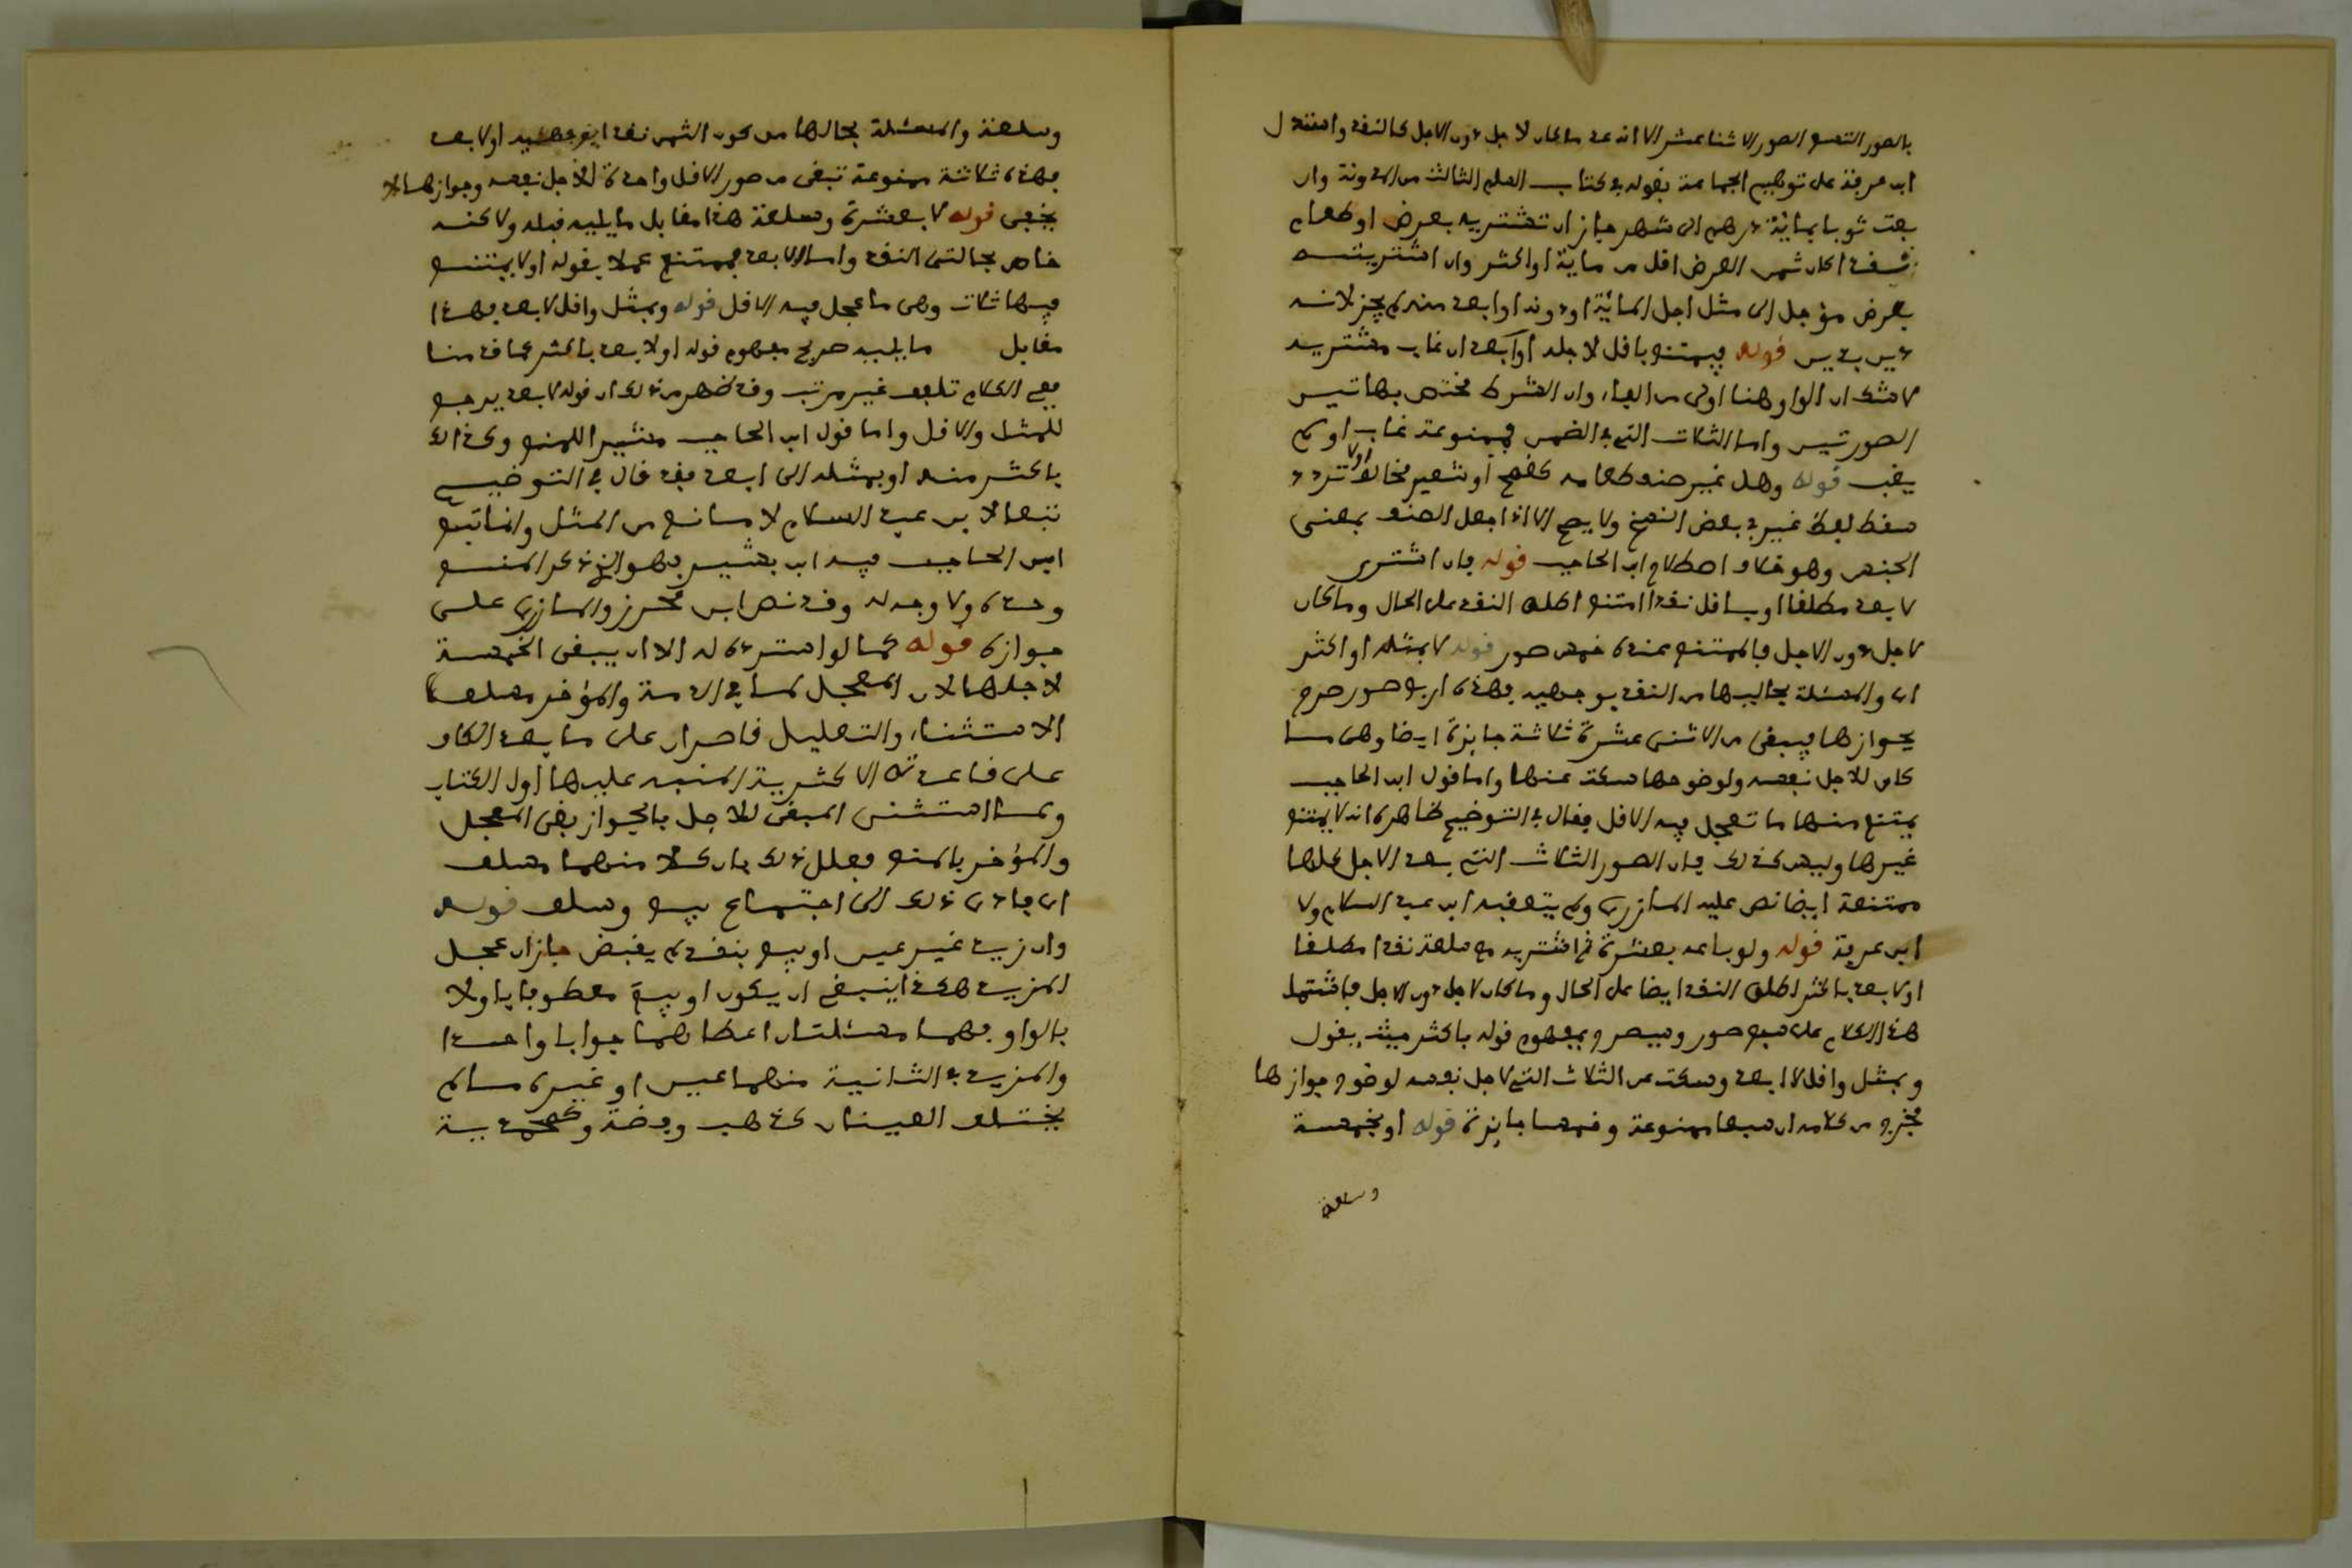 بالصور التسع الصور الاثنا عشر الا انه عد ما كان لاجل دون الاجل كالنقد واستدل
ابن عرفة على توهيم الجماعة بقوله في كتاب السلم الثالث من المدونة وان
بعت ثوبا بمائة درهم الى شهر جاز ان تشتريه بعرض او طعام
نقدا كان ثمن العرض اقل من ماية او اكثر وان اشتريته
بعرض مؤجل الى مثل اجل المائة او دونه او ابعد منه لم يجز لانه
دين بدين قوله فيمتنع باقل لاجله او ابعد ان غاب مشتريه
لا شك ان الواو هنا اولى من الفاء وان الشرط مختص بهاتين
الصورتين واما الثلاث التي في الضمن فممنوعة غاب او لم
يغب قوله وهل غير صنف طعامه كقمح او شعير مخالف او لا تردد
سقط لفظ غير في بعض النسخ ولا يصح الا اذا جعل الصنف بمعنى
الجنس وهو خلاف اصطلاح ابن الحاجب قوله وان اشترى
لابعد مطلقا او باقل نقدا امتنع اطلق النقد على الحال وما كان
لاجل دون الاجل فالممتنع عنده خمس صور قوله لا بمثله او اكثر
اي والمسئلة بحاليها من النقد بوجهيه فهذه اربع صور صرح
بجوازها فيبقى من الاثنى عشرة ثلاثة جايزة ايضا وهى ما
كان للاجل نفسه ولوضوحها سكت عنها واما قول ابن الحاجب
يمتنع منها ما تعجل فيه الاقل فقال في التوضيح ظاهره انه لا يمتنع
غيرها وليس كذلك فان الصور الثلاث التي بعد الاجل كلها
ممتنعة ايضا نص عليه المازري ولم يتعقبه ابن عبد السلام ولا
ابن عرفة قوله ولو باعه بعشرة ثم اشتريه مع سلعة نقدا مطلقا
او لابعد باكثر اطلق النقد ايضا على الحال وما كان لاجل دون الاجل فاشتمل
هذا الكلام على سبع صور وسيصرح بمفهوم قوله باكثر حيث يقول
وبمثل واقل لابعد وسكت عن الثلاث التي لاجل نفسه لوضوح جوازها
فخرج من كلامه ان سبعا ممنوعة وخمسا جايزة قوله او بخمسة
وسلعة
وسلعة والمسئلة بحالها من كون الثمن نقدا او لابعد
فهذه ثلاثة ممنوعة تبقى من صور الاقل واحدة للاجل نفسه وجوازها لا
يخفى قوله لا بعشرة وسلعة هذا مقابل ما يليه قبله ولاكنه
خاص بحالتى النقد واما الابعد فممتنع عملا بقوله او لا يمتنع
فيها ثلاث وهى ما عجل فيه الاقل قوله وبمثل واقل لابعد فهذا
مقابل ما يليه صريح مفهوم قوله او لابعد باكثر كما قدمنا
ففي الكلام تلفيف غير مرتب وقد ظهر من ذلك ان قوله لابعد يرجع
للمثل والاقل واما قول ابن الحاجب مشيرا للمنع وكذلك
باكثر منه او بمثله الى ابعد فقد قال في التوضيح
تبعا لابن عبد السلام لا مانع من المثل وانما تبع
ابن الحاجب فيه ابن بشير فهو الذي ذكر المنع
وحده ولا وجه له وقد نص ابن محرز والمازري على
جوازه قوله كما لو استرد له الا ان يبقى الخمسة
لاجلها لان المعجل لما في الذمة والمؤخر مسلف
الاستثناء والتعليل قاصران على ما بعد الكاف
على قاعدته الاكثرية المنبه عليها اول الكتاب
ولما استثنى المبقى للاجل بالجواز بقى المعجل
والمؤخر بالمنع فعلل ذلك بان كلا منهما مسلف
اي فادى ذلك الى اجتماع بيع وسلف قوله
وان زيد غير عين او بيع بنقد لم يقبض جاز ان عجل
المزيد هكذا ينبغي ان يكون او بيع معطوفا باو لا
بالواو فهما مسئلتان اعطاهما جوابا واحدا
والمزيد في الثانية منهما عين او غيره ما لم
يختلف العينان كذهب وفضة وكمحمدية